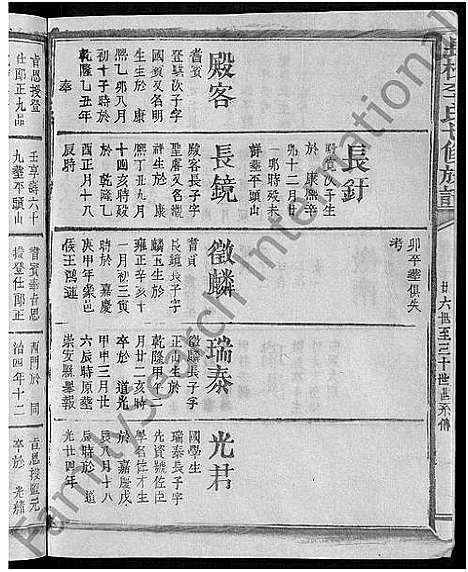 李氏七修族譜
廿六世至三十世世系傳
卯卒葬俱失
考
殿客
耆賓
登騏次子字
國賓又名明
生生於 康
熙乙卯八月
初十子時於
乾隆乙丑年
奉
恩授登
仕郎正九品
長釪
殿賓次子生
於 康熙辛
卯十二月廿
一卯時歿未
詳葬平頭山
長鏡
殿客長子字
聖庸又名濃
祥生於 康
熙丁丑九月
十四亥時歿
於 乾隆乙
酉正月十八
辰時
壬享壽六十
九葬平頭山
徵麟
耆賓
長鏡長子字
麟玉生於
雍正辛亥十
一月初三寅
時於 嘉慶
庚申年蒙邑
侯王鴻運
耆賓奉 恩
授登仕郎正
瑞泰
徵麟長子字
正山生於
乾隆甲午
月廿二亥時
卒於 道光
甲申三月廿
六辰時原葬
崇安縣舉報
西門於 同
治四年十二
光君
國學生
瑞泰長子字
先資號佐臣
學名偉才生
於 嘉慶戊
辰八月十八
辰時 道
光廿四年
恩授監元
卒於 光緒
FamilySearch International